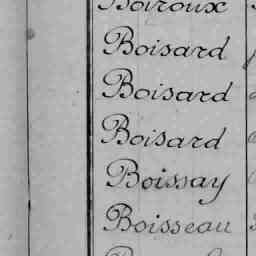 Boiroux
Boisard
Boisard
Boisard
Boissay
Boisseau